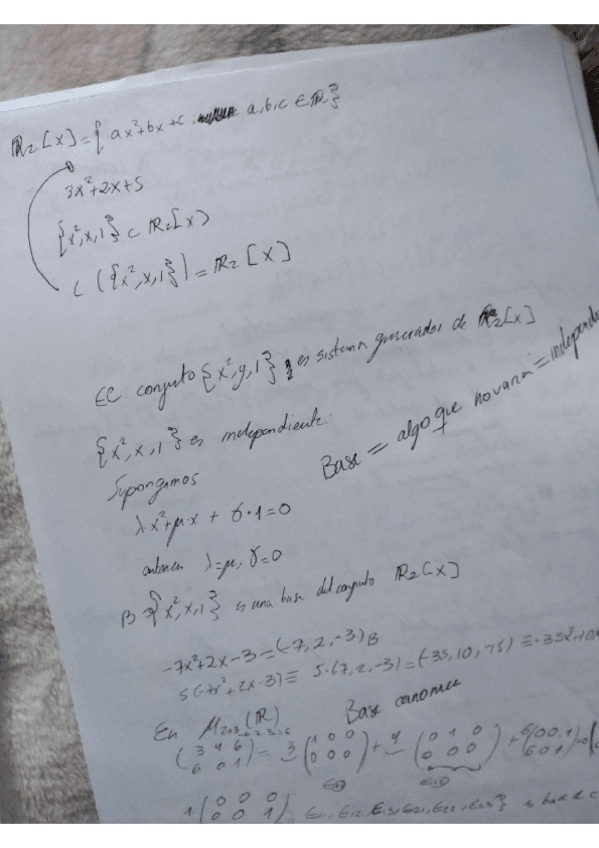 ℝ₂[x]={ax²+bx+c a,b,c ∈ℝ}
3x²+2x+5
{x²,x,1}⊂ ℝ₂[x]
L({x²,x,1})=ℝ₂[x]
El conjuto {x²,y,1} es sistema generador de ℝ₂[x]
{x²,x,1} es independiente.
Base = algo que no varia = independ
Supongamos
λx²+μ·x + γ·1=0
entonces λ=μ, γ=0
B={x²,x,1} es una base del conjuto ℝ₂[x]
-7x²+2x-3=(-7,2,-3)B
5(-7x²+2x-3)≡ 5·(-7,2,-3)=(-35,10,-15)≡-35x²+10x
En M₂ₓ₃(ℝ) Base canonica
(3 4 6
6 0 1) = 3(1 0 0
0 0 0) + 4(0 1 0
0 0 0) +
1(0 0 0
0 0 1)